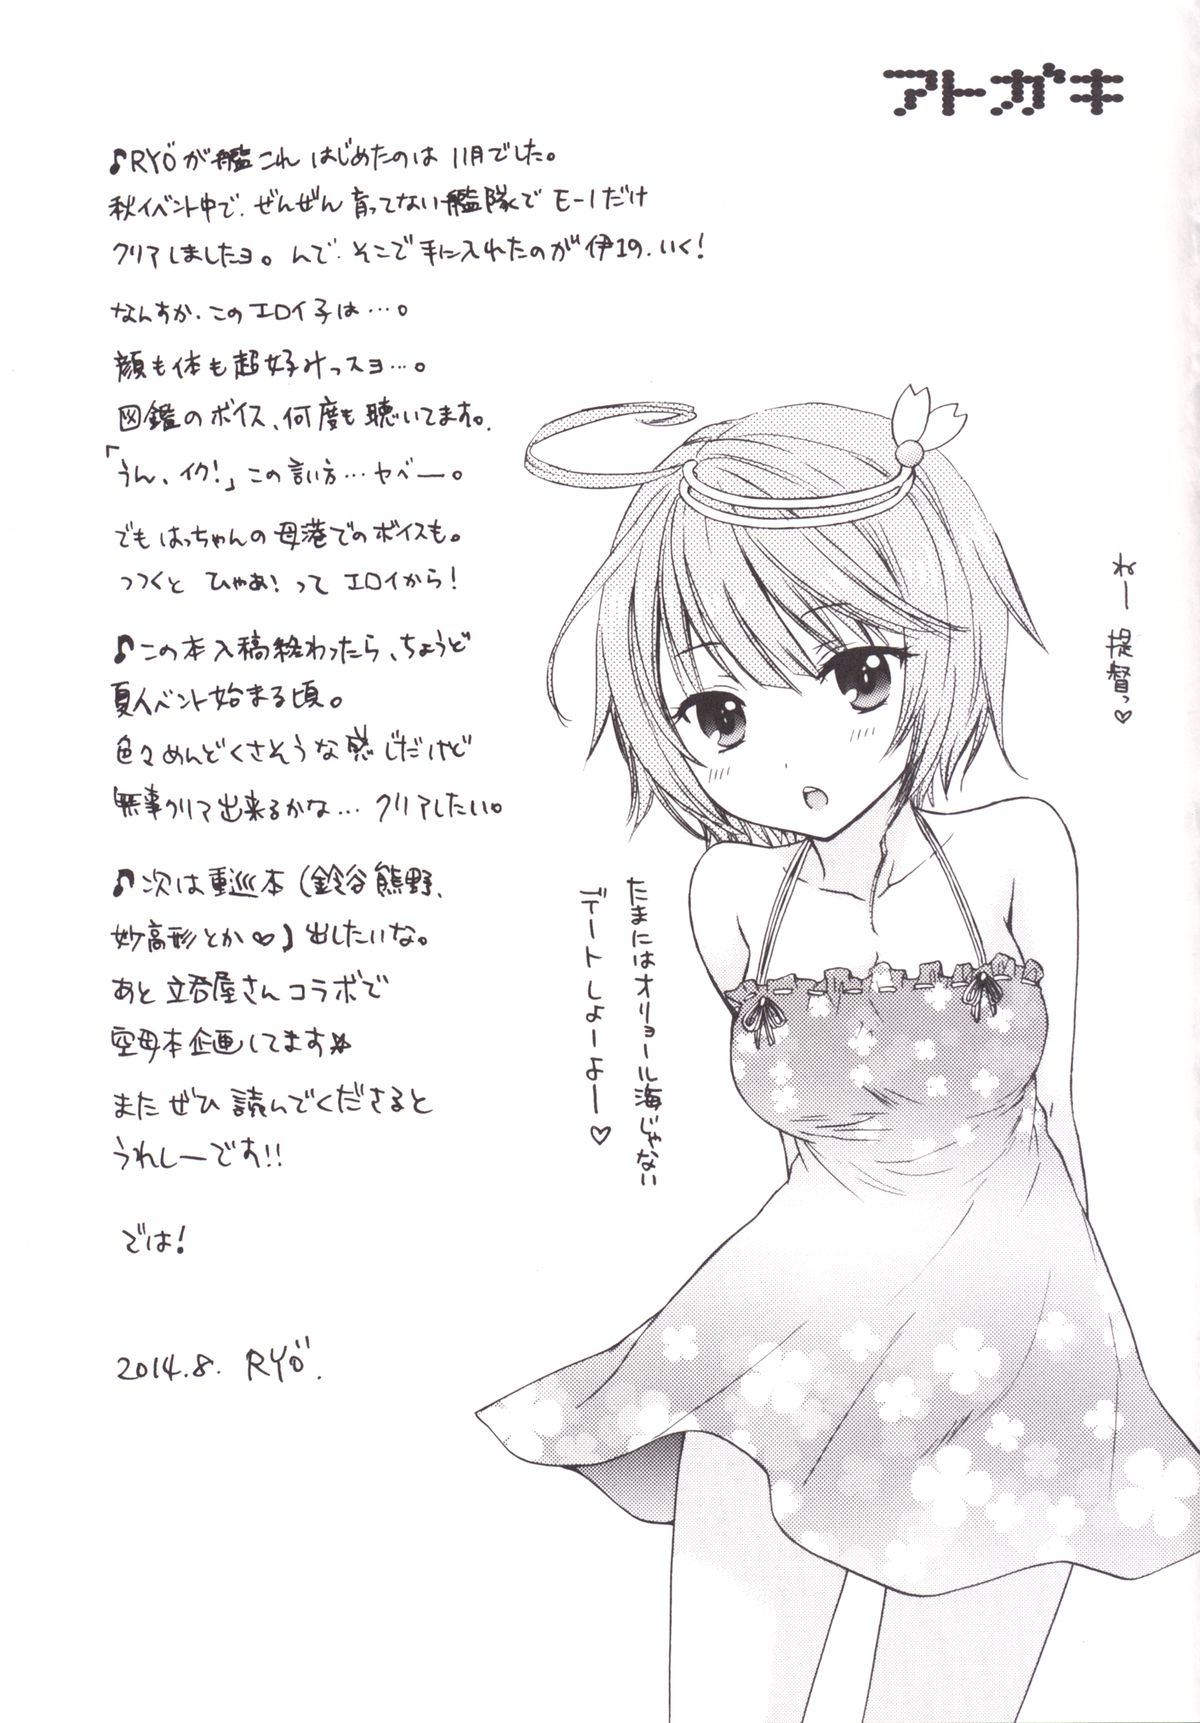 アトガキ
♪RYÖが艦これ はじめたのは 11月でした。
秋イベント中で、ぜんぜん育ってない艦隊で E-1だけ
クリアしましたヨ。んで、そこで手に入れたのが 伊19、いく!
なんすか、このエロイ子は…。
顔も体も超好みっスョ…。
図鑑のボイス、何度も聴いてます。
「うん、イク!」この言い方…ヤベー。
でもはっちゃんの母港でのボイスも。
つつくと ひゃあ!って エロイから!
♪この本入稿終わったら、ちょうど
夏イベント始まる頃。
色々めんどくさそうな感じだけど
無事クリア出来るかな… クリアしたい。
♪次は重巡本(鈴谷熊野、
妙高形とか♡)出したいな。
あと立呑屋さんコラボで
空母本企画してます☆
またぜひ読んでくださると
うれしーです!!
では!
2014.8. RYÖ.
ねー
提督っ♡
たまにはオリョール海じゃない
デートしよーよー♡